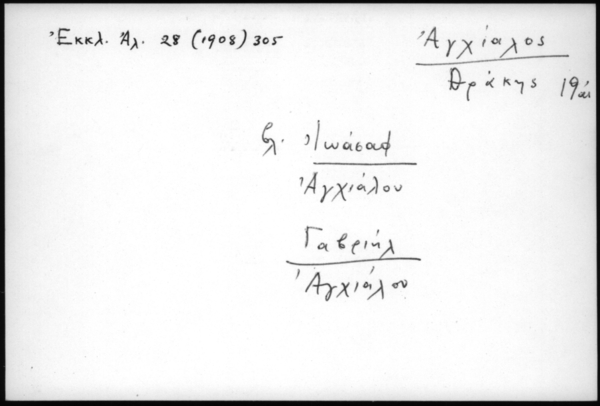 Ἐκκλ. Ἀλ. 28 (1908) 305
Ἀγχίαλος
Θράκης 19 αἰ
βλ. Ἰωάσαφ
Ἀγχιάλου
Γαβριήλ
Ἀγχιάλου